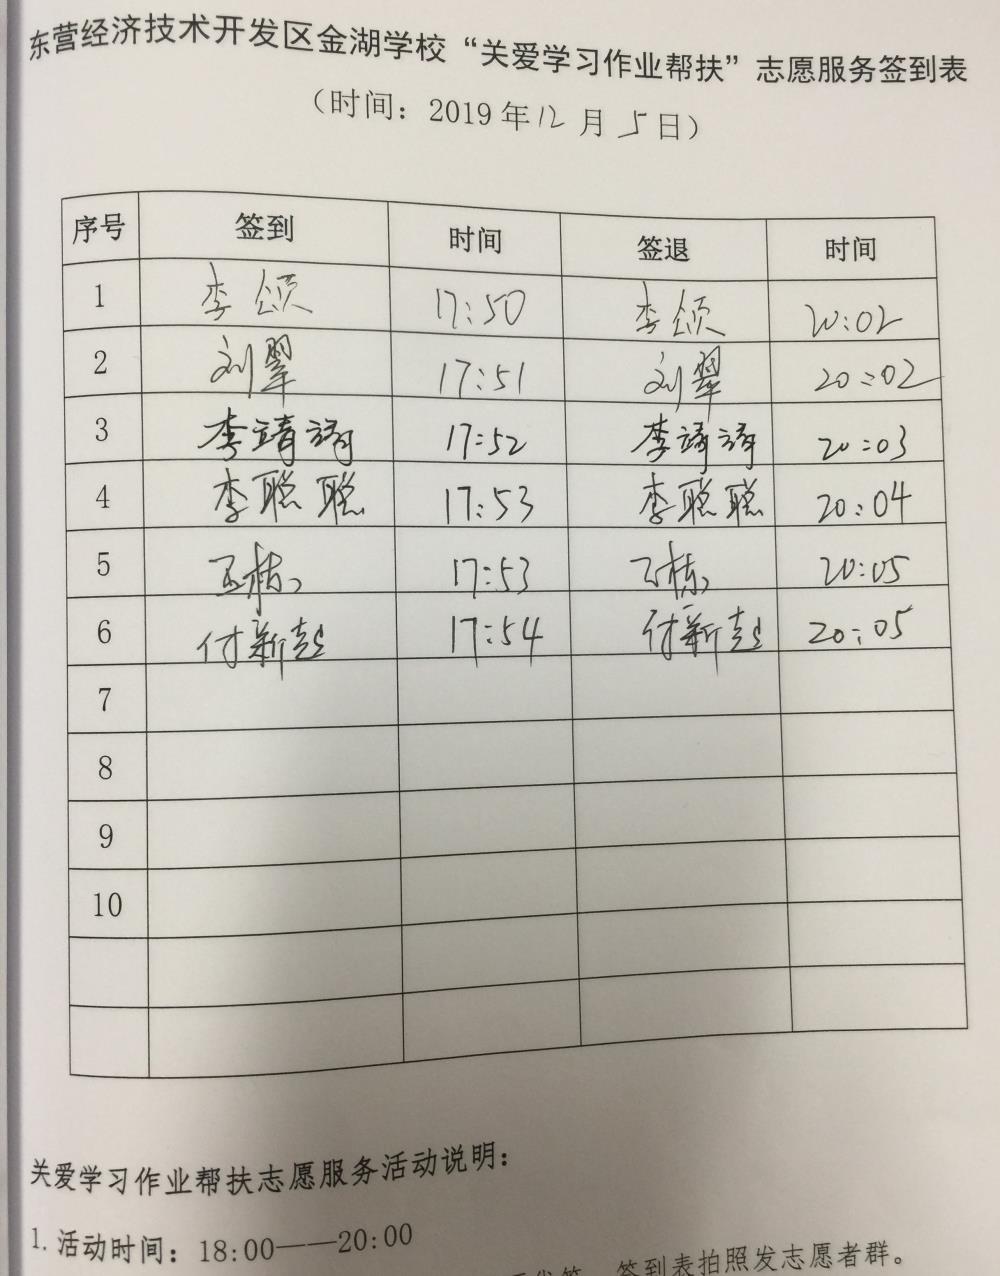 东营经济技术开发区金湖学校“关爱学习作业帮扶”志愿服务签到表
（时间：2019年12月5日）
序号 签到 时间 签退 时间
1 李颂 17:50 李颂 20:02
2 刘翠 17:51 刘翠 20:02
3 李靖 17:52 李靖 20:03
4 李聪聪 17:53 李聪聪 20:04
5 王栋 17:53 王栋 20:05
6 付新彭 17:54 付新彭 20:05
7
8
9
10
关爱学习作业帮扶志愿服务活动说明：
1.活动时间：18:00——20:00
签到表拍照发志愿者群。